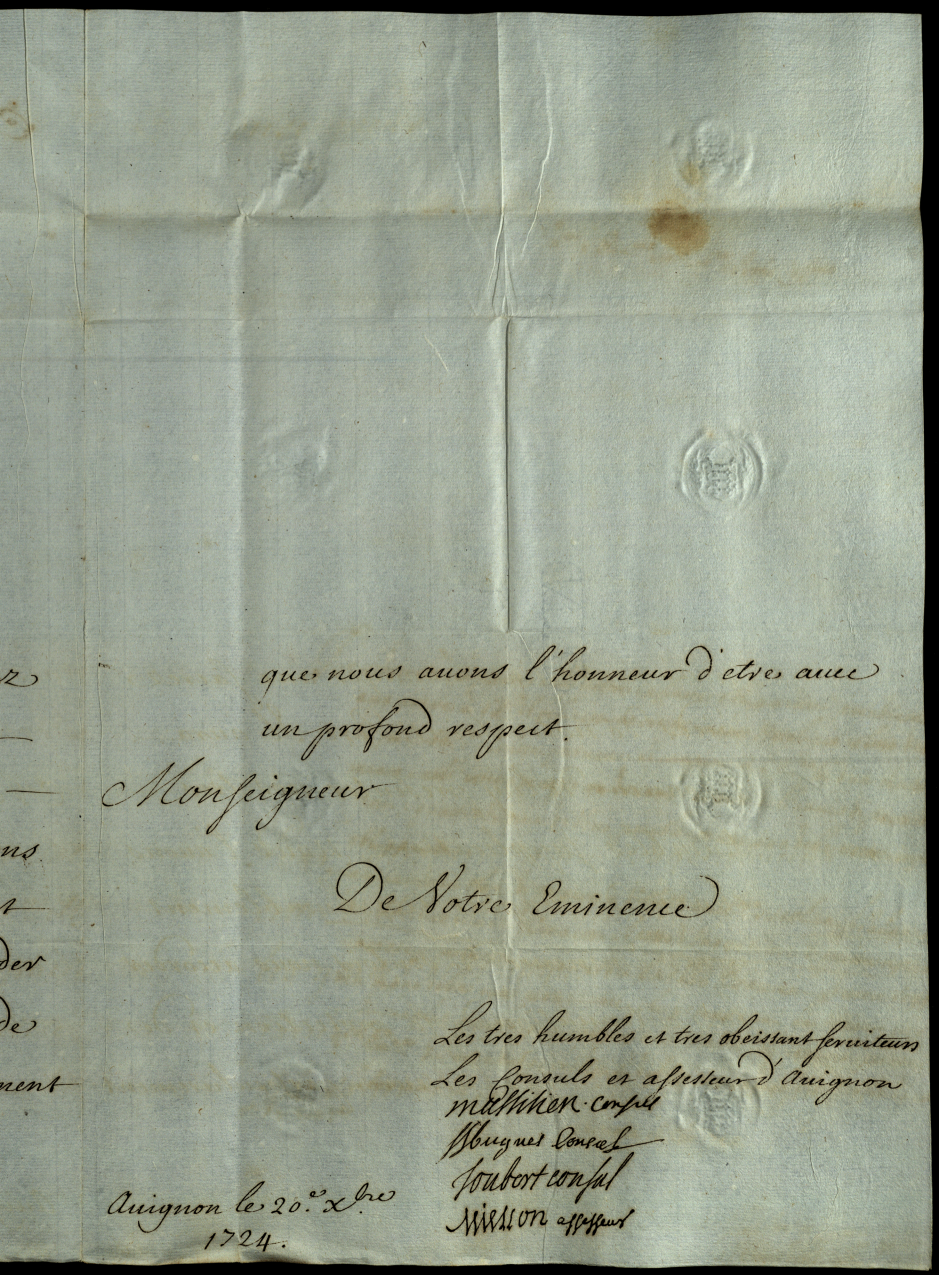 que nous auons l'honneur d'etre auec
un profond respect.
Monseigneur
De Votre Eminence
Les tres humbles et tres obeissant seruiteurs
Les Consuls et assesseur d'Auignon
massilien consul
hugues Consul
Joubert consul
assesseur
Auignon le 20.e xbre
1724.
ns
t
der
de
ment